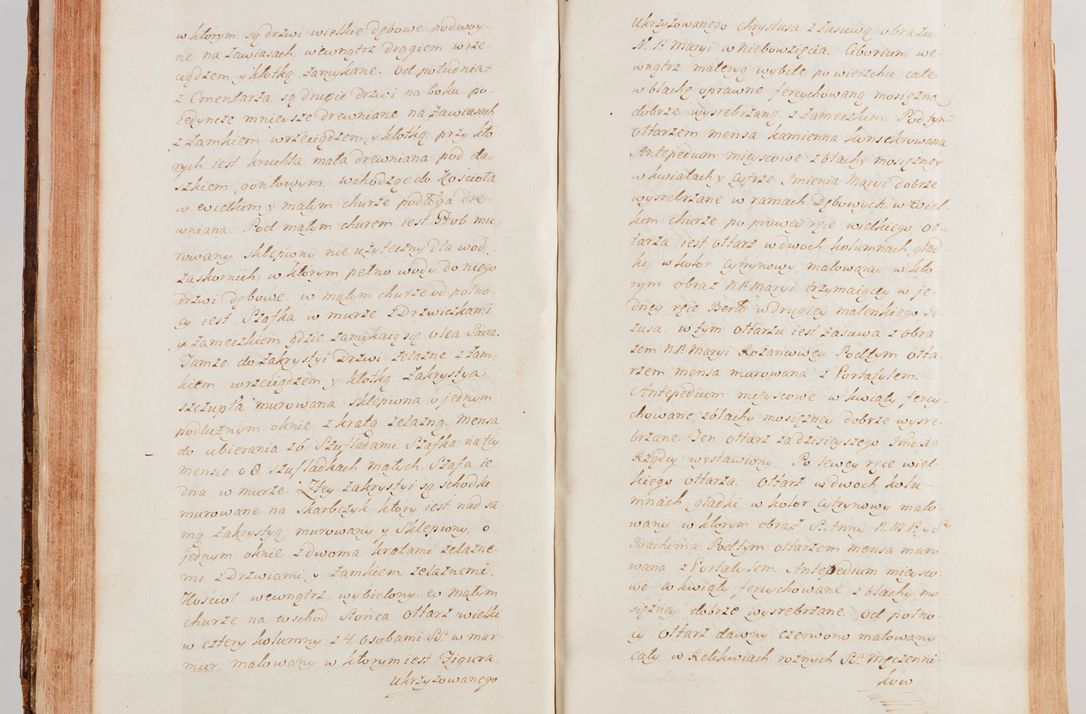 w ktorym są drzwi wielkie dębowe podwoy-
ne na zawiasach, wewnątrz drągiem wrze-
ciądzem y kłotką zamykane. Od południa
z Cmentarza są drugie drzwi na boku po-
iedyncze mnieysze drewniane na zawiasach
z zamkiem wrzeciądzem y kłotką, przy kto
rych iest kruchta mała drewniana pod da-
szkiem gontowym, wchodząc do Kościoła
w wielkim y małym churze podłoga dre-
wniana. Pod małym churem iest Grob mu
rowany sklepiony nie użyteczny dla wod
zaskornich, w ktorym pełno wody do niego
drzwi dębowe. w małym churze od połno-
cy iest Szafka w murze z Drzwiczkami
y zameczkiem gdzie zamykaią się Olea Sacra
Tamże do zakrystyi Drzwi żelazne z zam-
kiem wrzeciądzem y kłotką. Zakrystya
szczupła murowana sklepiona o jednym
podłużnym oknie z kratą żelazną. Mensa
do ubierania z 6 Szufladami Szafka na tey
mensie o 8 szufladkach małych. Szafa ie-
dna w murze. Z tey zakrystyi są schodki
murowane na Skarbczyk ktory iest nad sa
mą zakrystyą murowany y Sklepiony, o
jednym oknie z dwoma kratami żelazne-
mi z Drzwiami y zamkiem żelaznemi.
Kościoł wewnątrz wybielony, w małym
churze na wschod Słońca ołtarz wielki
w cztery kolumny z 4 osobami SS. w mar-
mur malowany w ktorym iest Figura
Ukrzyżowanego
Ukrzyżowanego Chrystusa z zasuwą obrazu
N. P. Maryi Wniebowzięcia. Ciborium we-
wnątrz materyą wybite po wierzchu całe
w blachę oprawne fercychowaną mosiężną
dobrze wysrebrzaną z zameczkiem. Pod tym
ołtarzem mensa kamienna konsekrowana
Antepedium mieyscowe z blachy mosiężney
w kwiatach y Cyfrze Jmienia Maryi dobrze
wysrebrzane w ramach Dębowych, w Wiel-
kim churze po prawey ręce wielkiego oł-
tarza iest ołtarz w dwoch kolumnach gład-
ki, w kolor cytrynowy malowany. w kto
rym obraz N.P. Maryi trzymaiącey w je-
dney ręce Berło w drugiey maleńskiego Je-
zusa. w tym ołtarzu iest zasuwa z obra
zem N.P. Maryi Rożancowey. Pod tym ołta-
rzem mensa murowana z Portatylem.
Antepedium mieyscowe w kwiaty fercy-
chowane z blachy mosiężney dobrze wysre-
brzane. Ten ołtarz za dzisieyszego Jmć X
Rządcy wystawiony. Po lewey ręce wiel-
kiego ołtarza. Ołtarz w dwoch kolu-
mnach gładki, w kolor cytrynowy malo-
wany w ktorym obraz S. Anny N.M.P. y S.
Joachima. Pod tym ołtarzem mensa muro
wana z Portatylem. Antepedium mieysco
we w kwiaty ferychowane z blachy mo-
siężney dobrze wysrebrzane. Od połno-
cy ołtarz dawny czerwono malowany
cały w Relikwiach rożnych SS. Męczenni-
kow